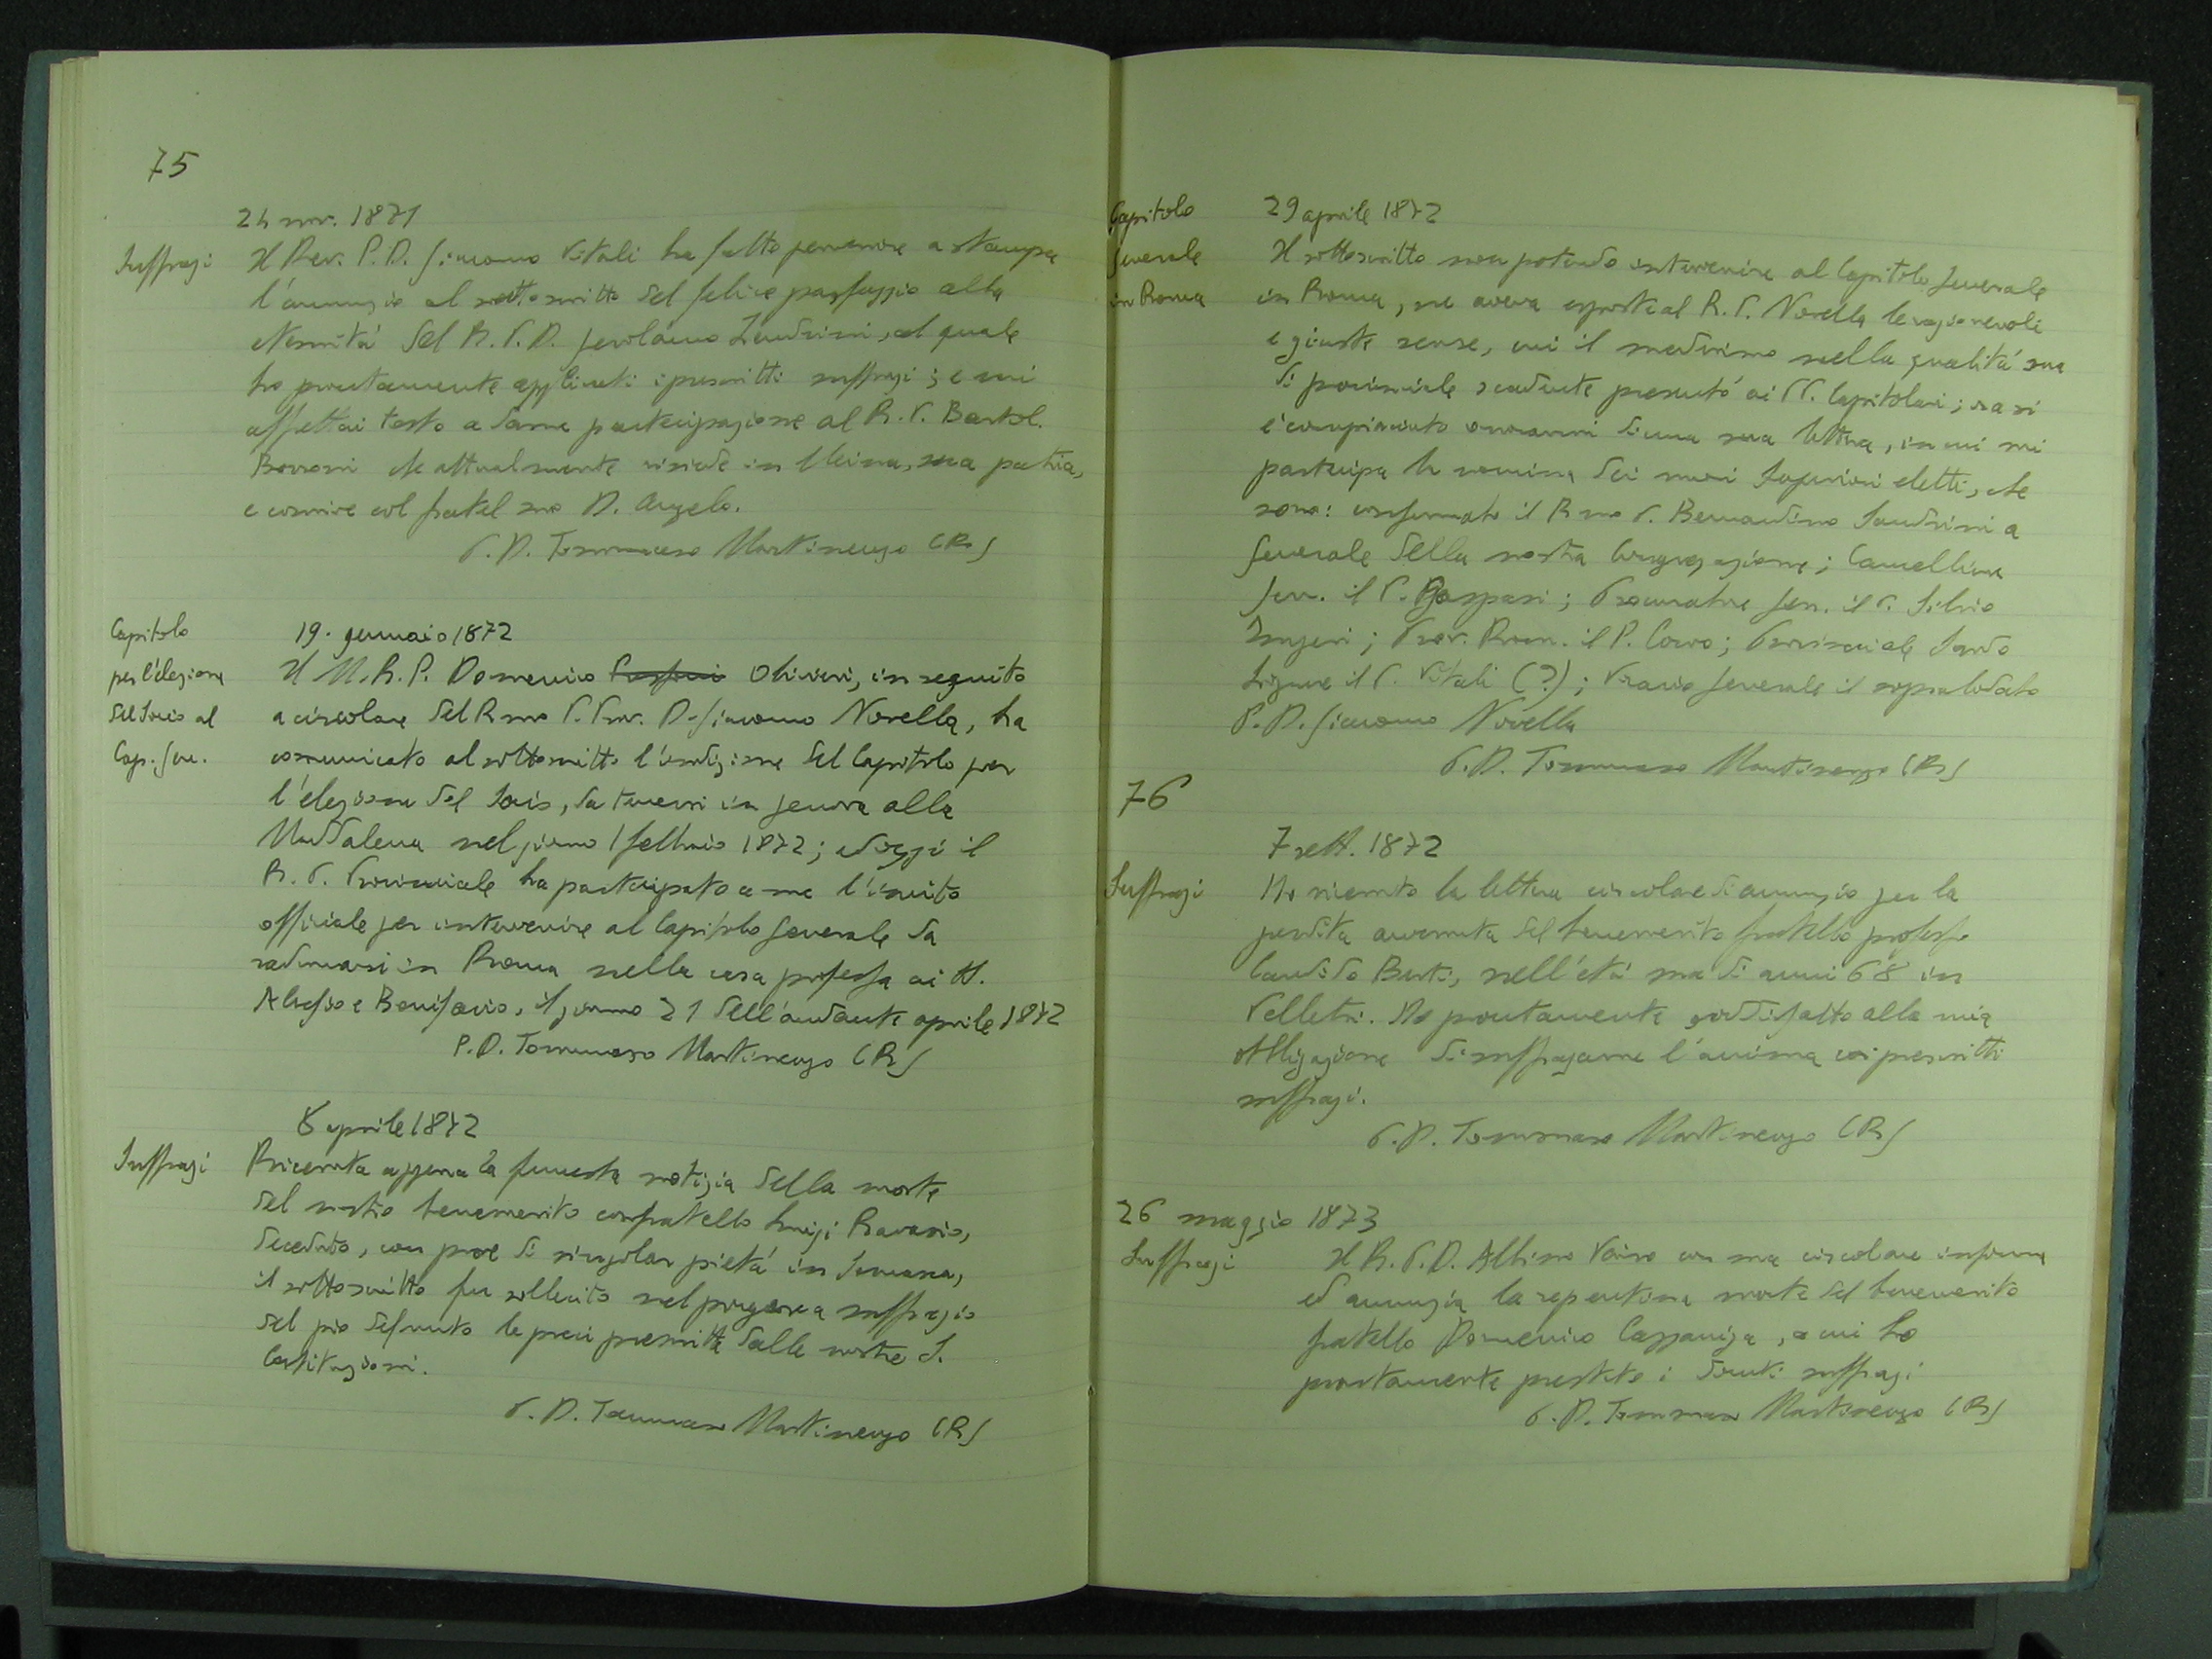 75
24 nov. 1871
Suffragi
Il Rev. P. D. Giacomo Vitali ha fatto pervenire a stampa
l'annunzio al sottoscritto del felice passaggio alla
eternità del R. P. D. Gerolamo Zendrini, al quale
ho prontamente applicati i prescritti suffragi; e mi
affrettai tosto a darne partecipazione al R. P. Bartol.
Borroni che attualmente risiede in sua patria,
e convive col fratel suo D. Angelo.
P. D. Tommaso Martinengo (R)
Capitolo
per l'elezione
del Socio al
Cap. Gen.
19. gennaio 1872
Il M. R. P. Domenico Olivieri, in seguito
a circolare del R.mo P. Prov. D. Giacomo Novella, ha
comunicato al sottoscritto l'indizione del Capitolo per
l'elezione del Socio, da tenersi in Genova alla
Maddalena nel giorno 1 febbraio 1872; ed oggi il
R. P. Provinciale ha partecipato a me l'invito
officiale per intervenire al Capitolo Generale da
radunarsi in Roma nella casa professa ai SS.
Alessio e Bonifacio, il giorno 21 dell'andante aprile 1872
P. D. Tommaso Martinengo (R)
8 aprile 1872
Suffragi
Ricevuta appena la funesta notizia della morte
del nostro benemerito confratello Luigi Ravasio,
deceduto, con prove di singolar pietà in Somasca,
il sottoscritto fu sollecito nel porgere a suffragio
del pio defunto le preci prescritte dalle nostre S.
Costituzioni.
P. D. Tommaso Martinengo (R)
Capitolo
Generale
in Roma
29 aprile 1872
Il sottoscritto non potendo intervenire al Capitolo Generale
in Roma, ne aveva esposte al R. P. Novella le ragionevoli
e giuste scuse, cui il medesimo nella qualità sua
di provinciale scadente presentò ai PP. Capitolari; ora si
è compiaciuto onorarmi di una sua lettera, in cui mi
partecipa la nomina dei nuovi Superiori eletti, che
sono: confermato il R.mo P. Bernardino Sandrini a
Generale della nostra Congregazione; Cancelliere
Gen. il P. Gaspari; Procuratore Gen. il P. Silvio
Imperi; Prov. Rom. il P. Corvo; Provinciale Sardo
Ligure il P. Vitali (?); Vicario Generale il sopralodato
P. D. Giacomo Novella
P. D. Tommaso Martinengo (R)
76
7 sett. 1872
Suffragi
Ho ricevuto la lettera circolare di annunzio per la
perdita avvenuta del benemerito fratello professo
Candido Berti, nell'età sua di anni 68 in
Velletri. Ho prontamente soddisfatto alla mia
obbligazione di suffragarne l'anima coi prescritti
suffragi.
P. D. Tommaso Martinengo (R)
26 maggio 1873
Suffragi
Il R. P. D. Albino Vairo con sua circolare informa
ed annunzia la repentina morte del benemerito
fratello Domenico Cazzaniga, a cui ho
prontamente prestato i dovuti suffragi
P. D. Tommaso Martinengo (R)